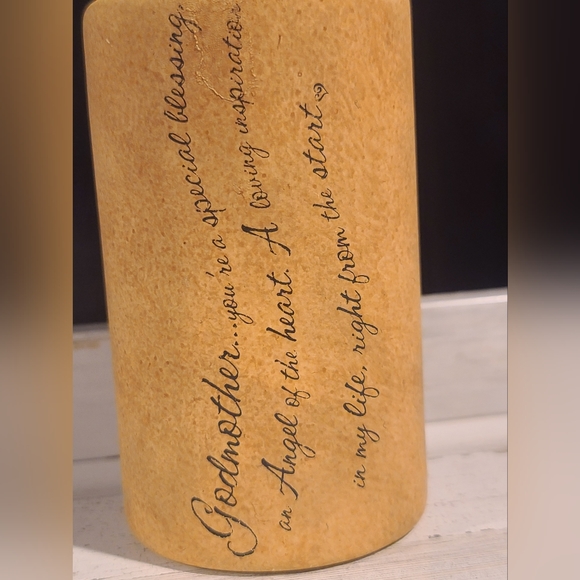 Godmother...you're a special blessing,
an Angel of the heart. A loving inspiration
in my life, right from the start